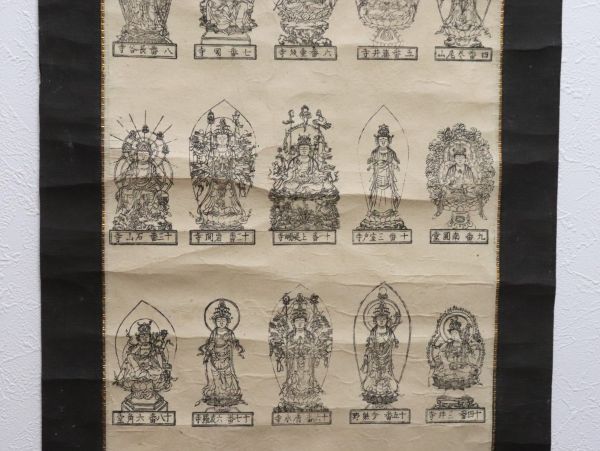 四番 槙尾山
五番 藤井寺
六番 壷坂寺
七番 岡寺
八番 長谷寺
九番 南圓堂
十番 三室戸寺
十一番 上醍醐寺
十二番 岩間寺
十三番 石山寺
十四番 三井寺
十五番 今熊野
十六番 清水寺
十七番 六波羅寺
十八番 六角堂